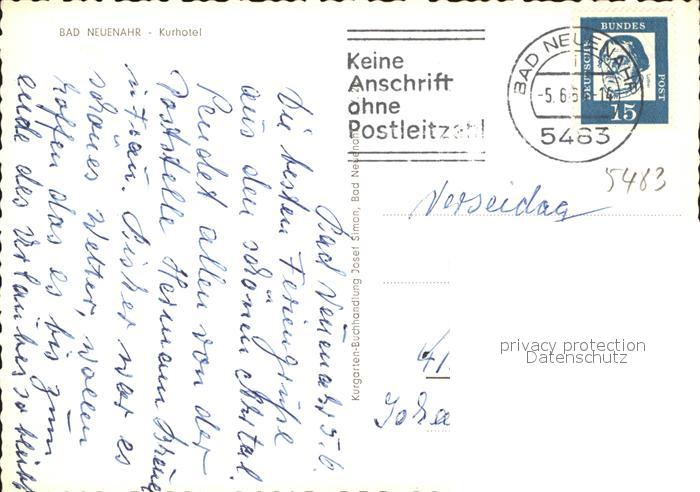 BAD NEUENAHR - Kurhotel
Keine
Anschrift
ohne
Postleitzahl
BAD NEUENAHR
-5.6.6
5483
DEUTSCHE
BUNDES
POST
15
5483
Verseidag
41
Joha
privacy protection
Datenschutz
Kurgarten-Buchhandlung Josef Simon, Bad Neuenahr
Bad Neuenahr 5.6.
Die besten Feriengrüße
aus den schönen Ahrtal
sendet allen von der
Poststelle Hermann
u. Frau. Bisher war es
schönes Wetter, wollen
hoffen das es bis zum
ende des Urlaubes so bleibt